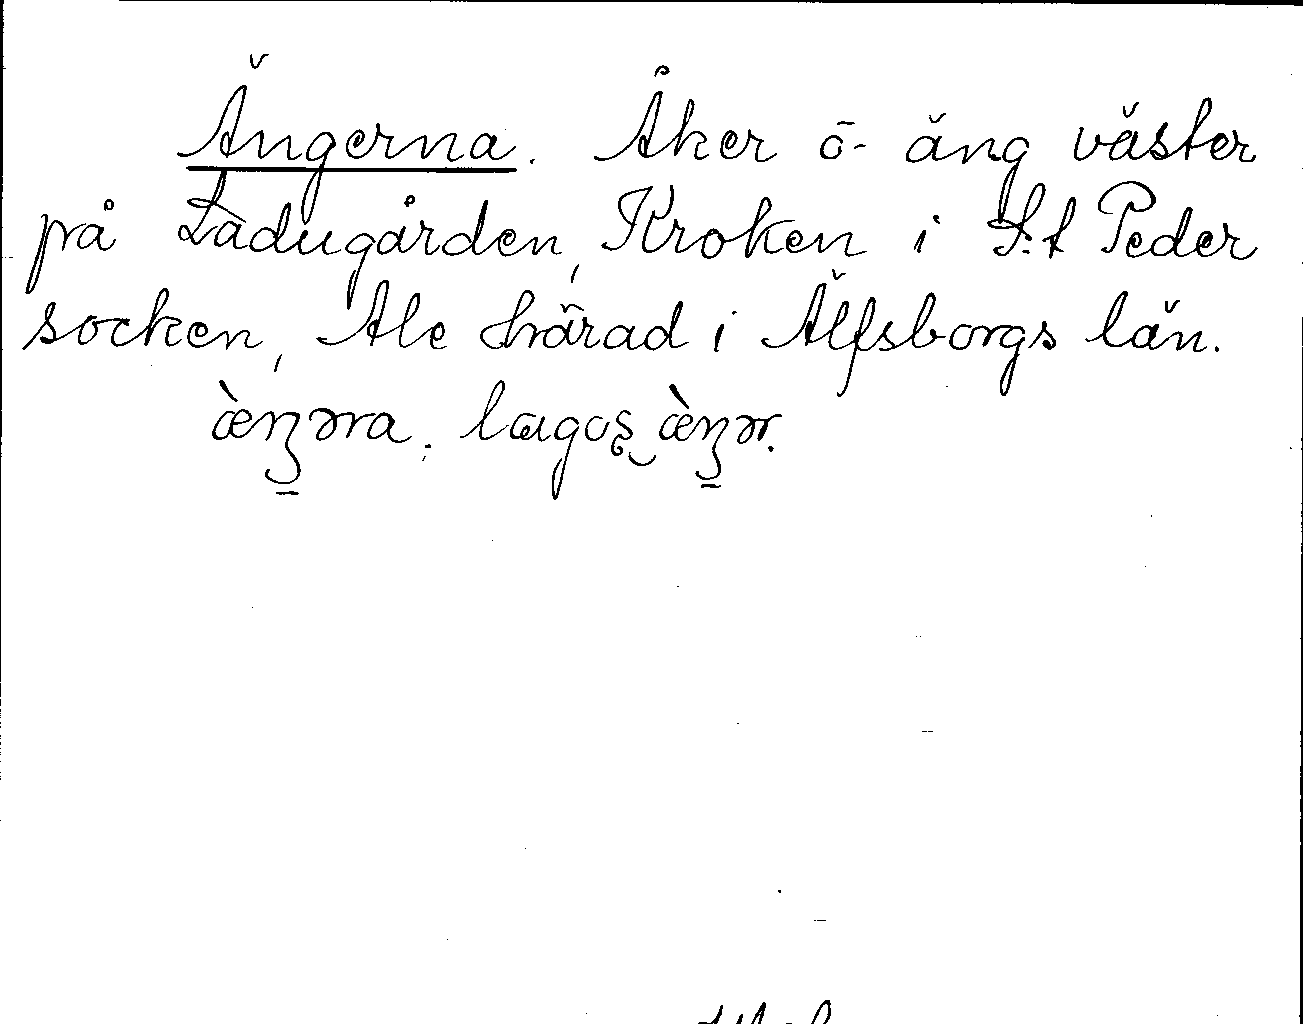 Ängerna. Åker ō- äng väster
på Ladugården, Kroken i S:t Peder
socken, Ale härad i Älfsborgs län.